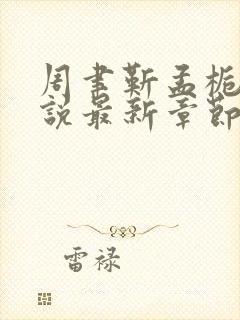 周聿靳孟栀
說最新章節
雷禄